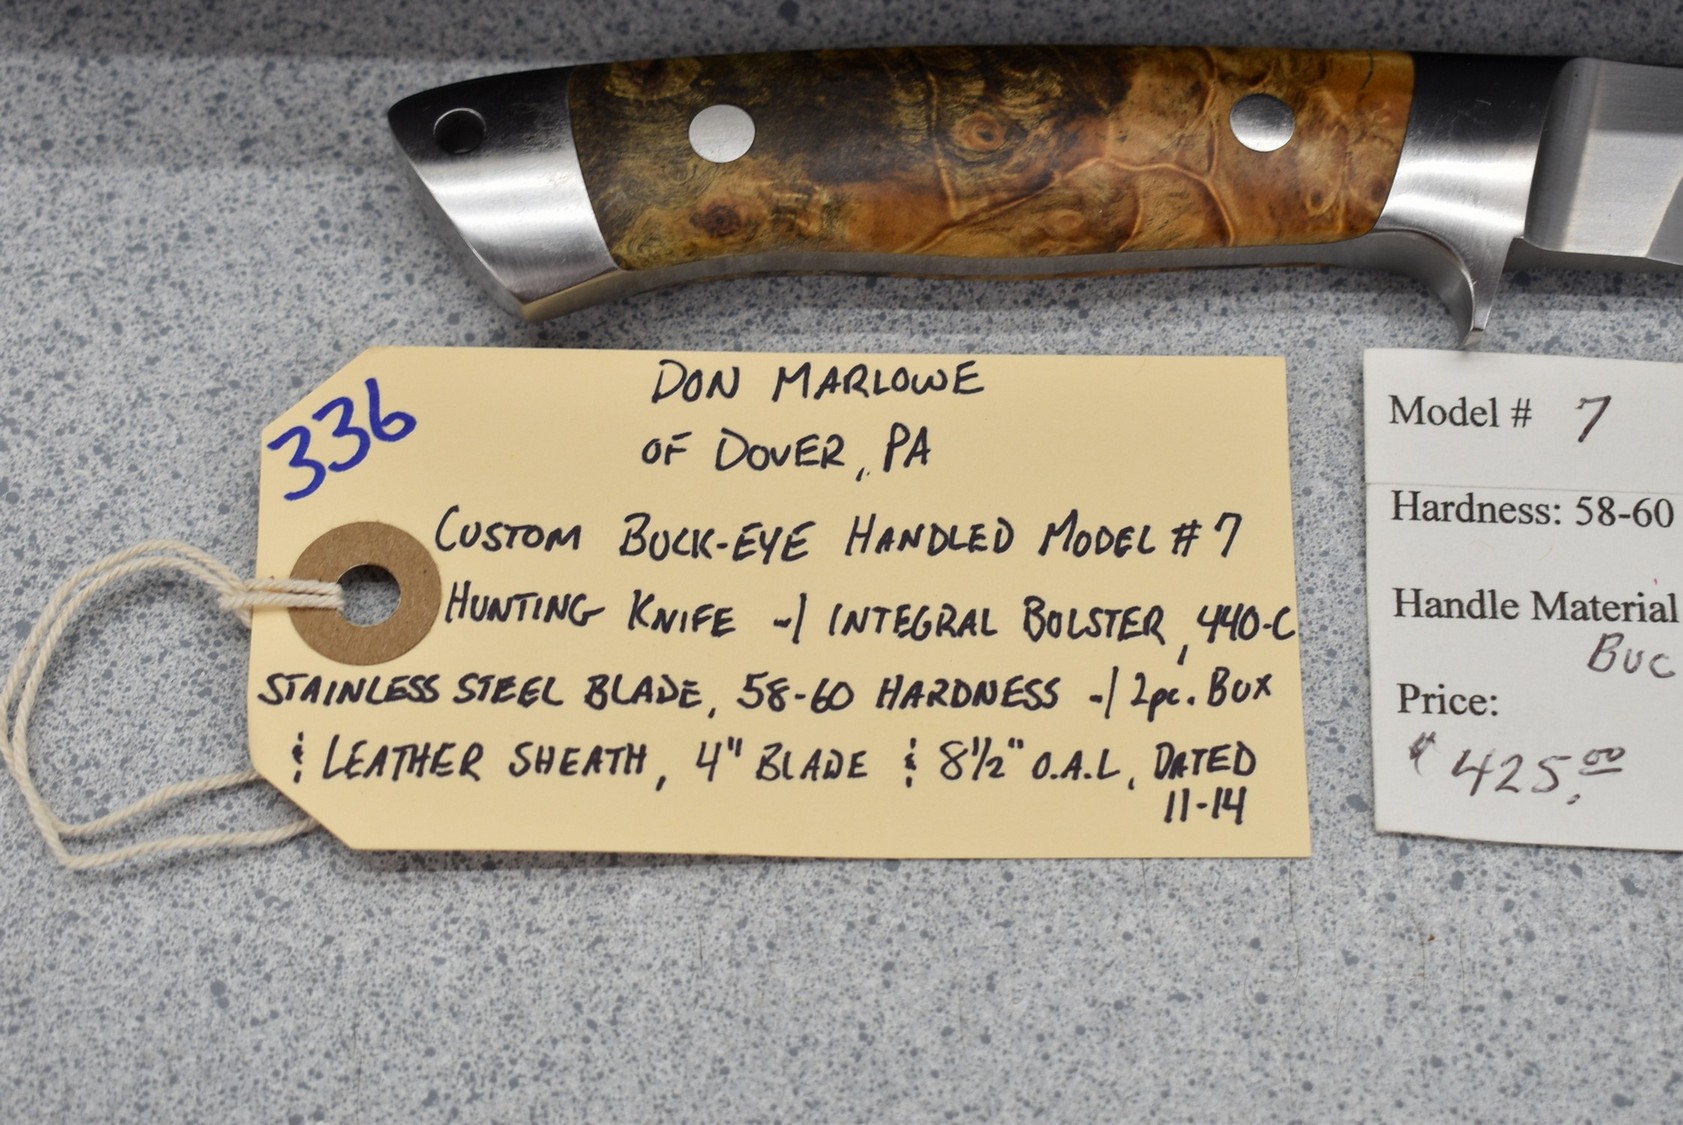 336
DON MARLOWE
OF DOVER, PA
CUSTOM BUCK-EYE HANDLED MODEL #7
HUNTING KNIFE w/ INTEGRAL BOLSTER, 440-C
STAINLESS STEEL BLADE, 58-60 HARDNESS w/ 2pc. BOX
& LEATHER SHEATH, 4" BLADE & 8½" O.A.L, DATED
11-14
Model # 7
Hardness: 58-60
Handle Material
Buc
Price:
$425.00